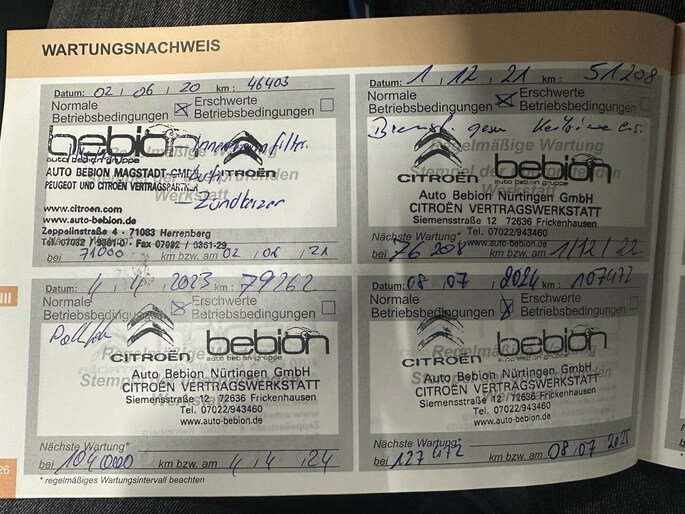 WARTUNGSNACHWEIS
Datum: 02, 06, 20 km: 46403
Normale Betriebsbedingungen ☒ Erschwerte Betriebsbedingungen ☐
bebion
CITROËN
Innenraumfiltr.
AUTO BEBION MAGSTADT
PEUGEOT UND CITROËN VERTRAGSPARTNER
- Zündkerzen
www.citroen.com
www.auto-bebion.de
Zeppelinstraße 4 · 71083 Herrenberg
Tel. 07032 / 9361-0 · Fax 07032 / 9361-29
bei 71000 km bzw. am 02, 06, 21
Datum: 1, 12, 21 km: 51208
Normale Betriebsbedingungen ☒ Erschwerte Betriebsbedingungen ☐
Regelmäßige Wartung
CITROËN bebion
auto bebion gruppe
Auto Bebion Nürtingen GmbH
CITROËN VERTRAGSWERKSTATT
Siemensstraße 12 72636 Frickenhausen
Tel. 07022/943460
www.auto-bebion.de
Nächste Wartung*
bei 76208 km bzw. am 1/12/22
4, 4, 2023 km: 79262
Normale Betriebsbedingungen ☒ Erschwerte Betriebsbedingungen ☐
CITROËN bebion
auto bebion gruppe
Auto Bebion Nürtingen GmbH
CITROËN VERTRAGSWERKSTATT
Siemensstraße 12 72636 Frickenhausen
Tel. 07022/943460
www.auto-bebion.de
Nächste Wartung*
bei 104000 km bzw. am 4, 4, 24
Datum: 08, 07, 2024 km: 107472
Normale Betriebsbedingungen ☒ Erschwerte Betriebsbedingungen ☐
Regelmäßige Wartung
CITROËN bebion
auto bebion gruppe
Auto Bebion Nürtingen GmbH
CITROËN VERTRAGSWERKSTATT
Siemensstraße 12 72636 Frickenhausen
Tel. 07022/943460
www.auto-bebion.de
Nächste Wartung*
bei 127472 km bzw. am 08, 07
* regelmäßiges Wartungsintervall beachten
III
26